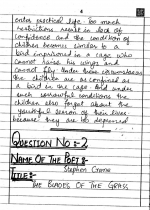 4
enter practical life. Too much
restrictions result in lack of
confidence and the condition of
children becomes similar to a
bird imprisoned in a cage who
cannot raise his wings and
cannot fly. Under these circumstances
the children are as confined as
a bird in the cage. And under
such sorrowful conditions the
children also forget about the
youthful season of their lives
because they are so depressed
QUESTION NO :- 2
NAME OF THE POET :-
Stephen Crane
TITLE :-
THE BLADES OF THE GRASS